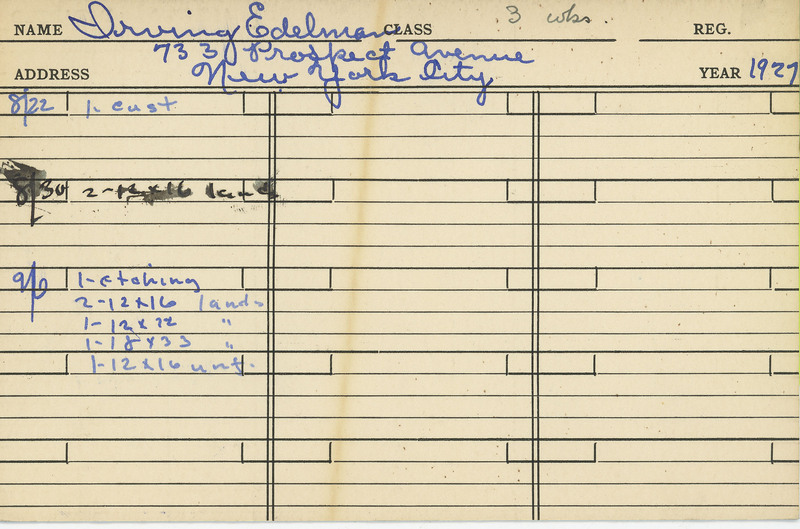 NAME Irving Edelman CLASS 3 wks. REG.
733 Prospect Avenue
ADDRESS New York City YEAR 1927
8/22 1- cast
8/30 2-12x16 land
9/6 1-etching
2-12x16 lands
1-12x22 "
1-18x33 "
1-12x16 unf.